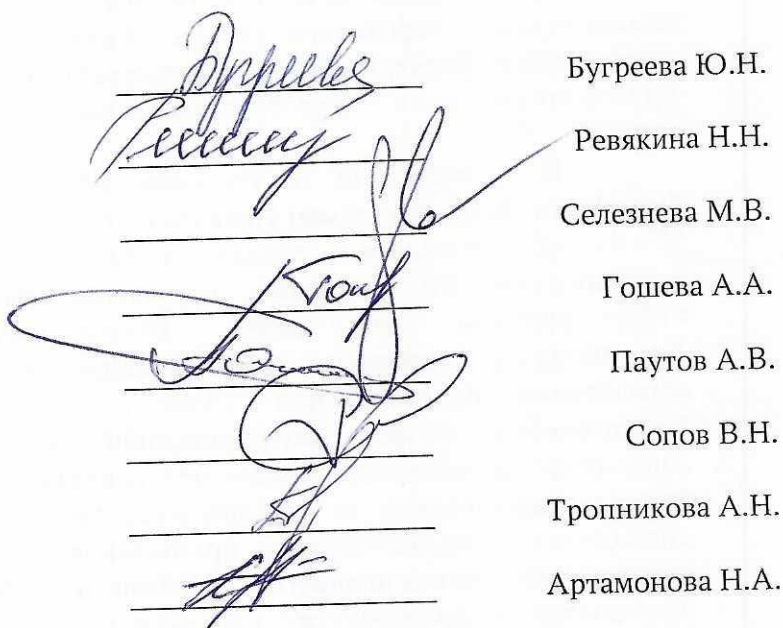 Бугреева Ю.Н.
Ревякина Н.Н.
Селезнева М.В.
Гошева А.А.
Паутов А.В.
Сопов В.Н.
Тропникова А.Н.
Артамонова Н.А.